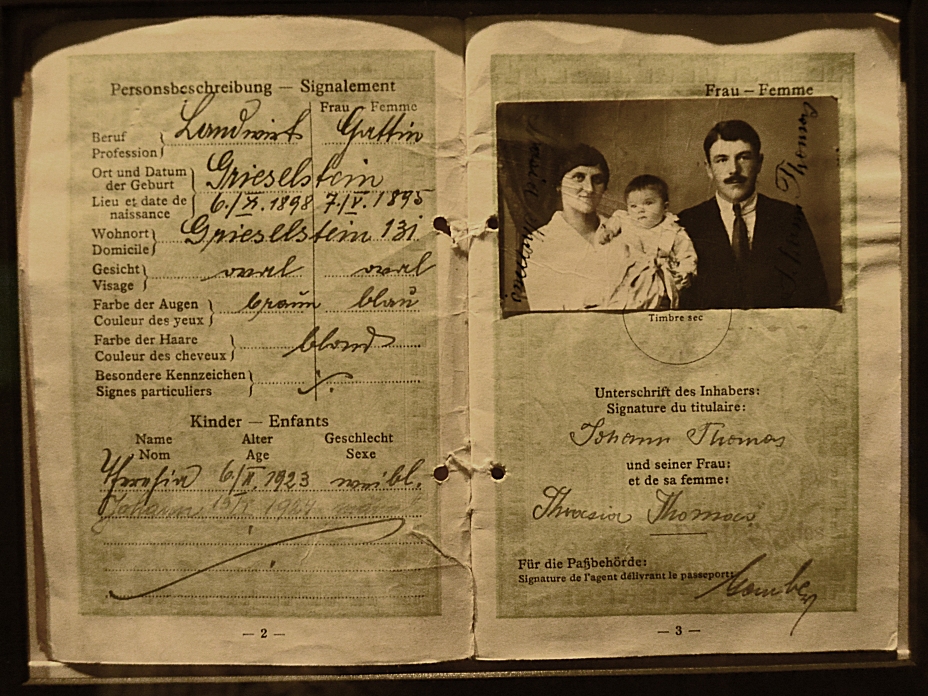 Personsbeschreibung — Signalement
Frau – Femme
Beruf
Profession
Landwirt Gattin
Ort und Datum
der Geburt
Grieselstein
Lieu et date de
naissance
6./X. 1898 7./V. 1895
Wohnort
Domicile
Grieselstein 131
Gesicht
Visage
oval oval
Farbe der Augen
Couleur des yeux
braun blau
Farbe der Haare
Couleur des cheveux
blond
Besondere Kennzeichen
Signes particuliers
./.
Kinder — Enfants
Name Alter Geschlecht
Nom Age Sexe
Theresia 6/II. 1923 weibl.
Johann
— 2 —
Frau – Femme
Johann Thomas
Timbre sec
Unterschrift des Inhabers:
Signature du titulaire:
Johann Thomas
und seiner Frau:
et de sa femme:
Theresia Thomas
Für die Paßbehörde:
Signature de l'agent délivrant le passeport:
— 3 —